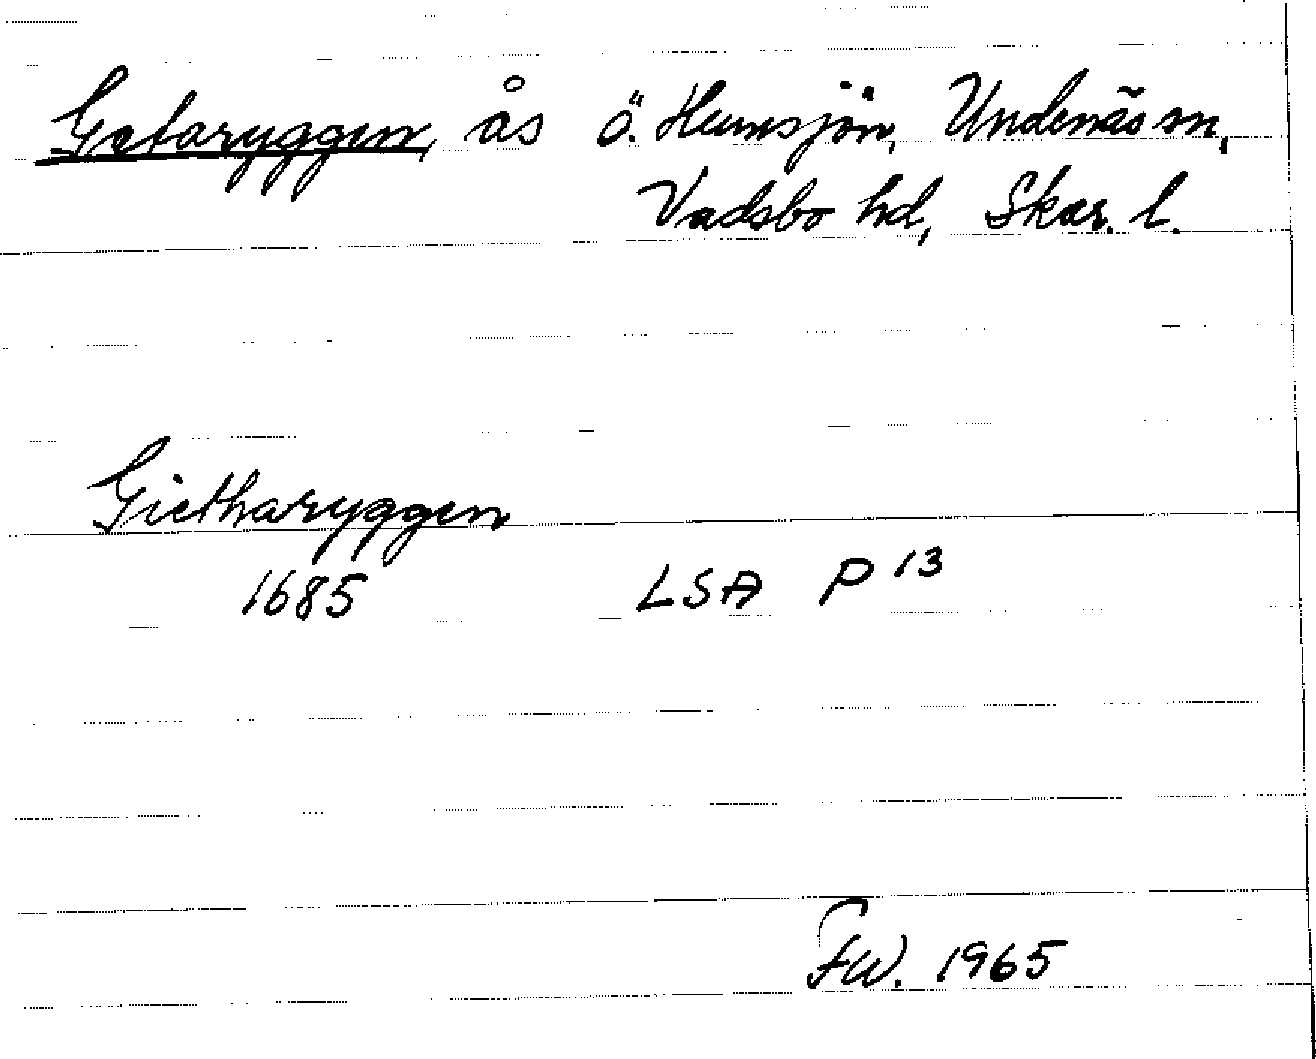 Getaryggen, ås ö. Humsjön, Undenäs sn,
Vadsbo hd, Skar. l.
Gietharyggen
1685 LSA P 13
FW. 1965